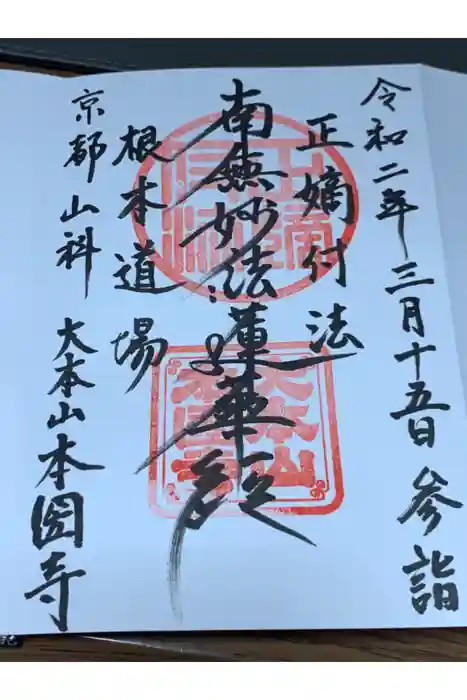 令和二年三月十五日 参詣
正嫡付法
南無妙法蓮華経
根本道場
京都山科 大本山本圀寺
大本山
本圀寺